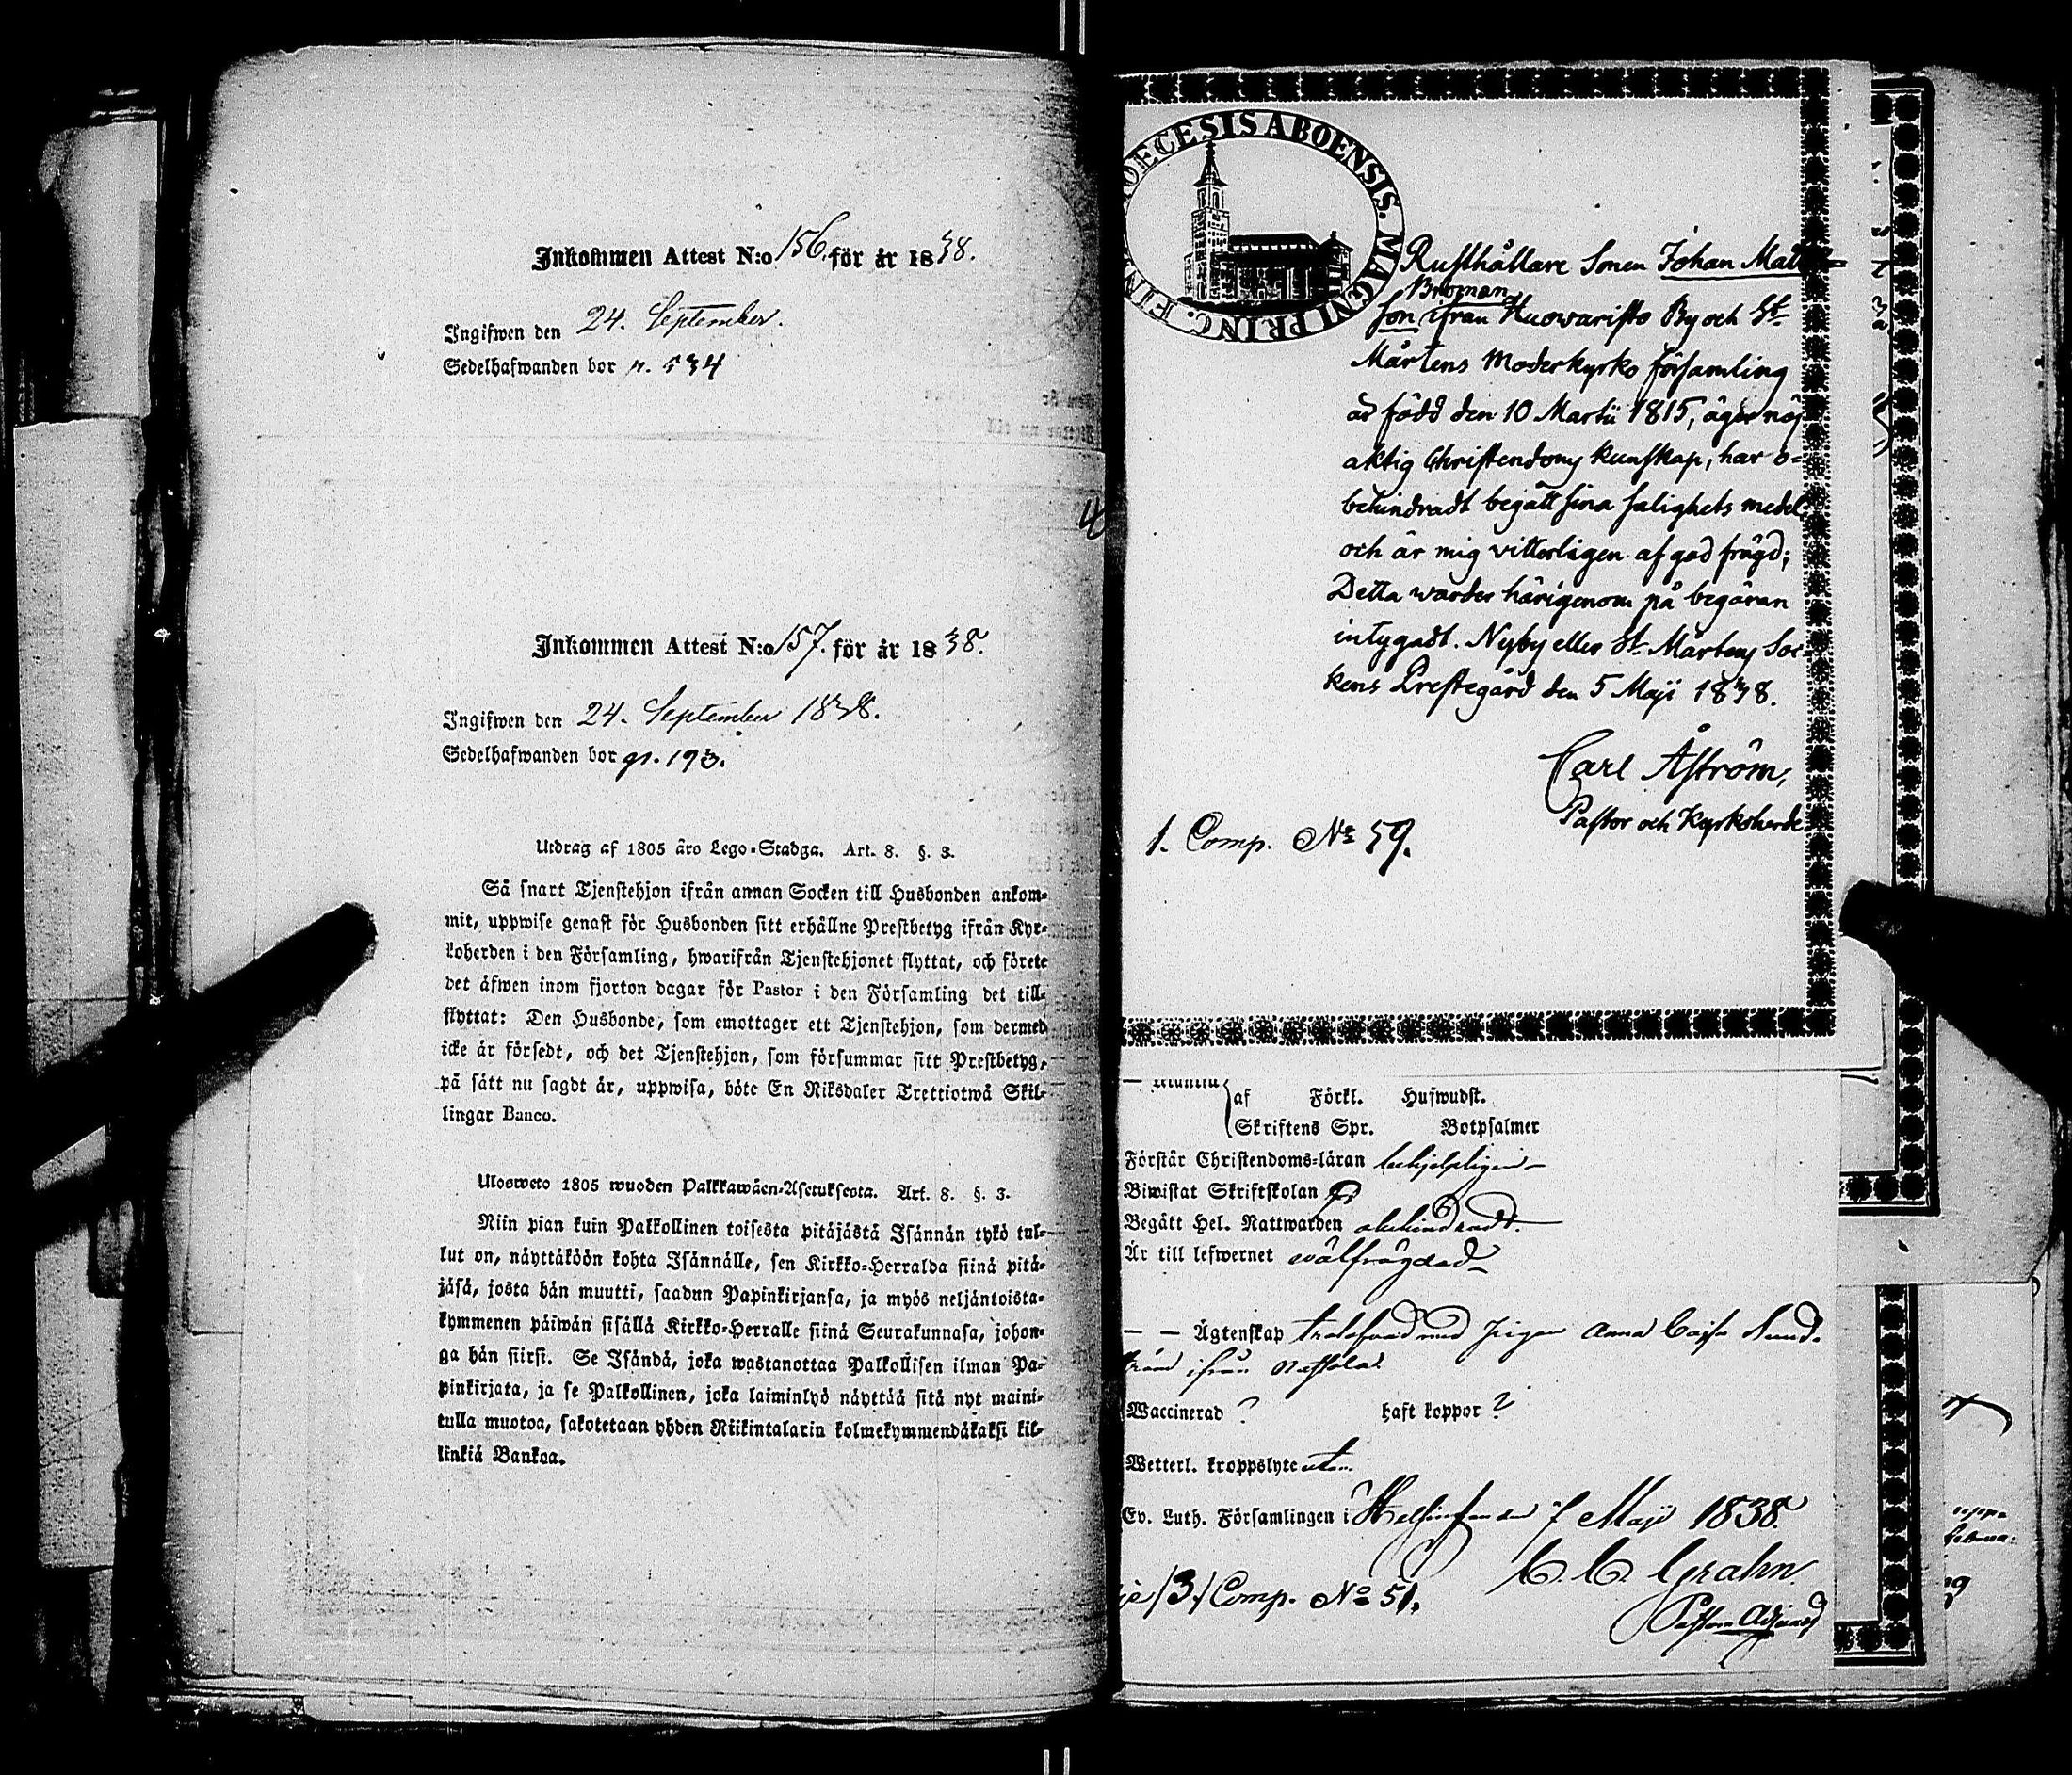 Inkommen Attest N:o 156. för år 1838.
Ingifwen den 24. September.
Sedelhafwanden bor n. 534
Inkommen Attest N:o 157. för år 1838.
Ingifwen den 24. September 1838.
Sedelhafwanden bor gr. 193.
Utdrag af 1805 års Lego-Stadga. Art. 8. §. 3.
Så snart Tjenstehjon ifrån annan Socken till Husbonden ankom-
mit, uppwise genast för Husbonden sitt erhållne Prestbetyg ifrån Kyr-
koherden i den Församling, hwarifrån Tjenstehjonet flyttat, och förete
det äfwen inom fjorton dagar för Pastor i den Församling det till-
flyttat: Den Husbonde, som emottager ett Tjenstehjon, som dermed
icke är försedt, och det Tjenstehjon, som försummar sitt Prestbetyg,
på sätt nu sagdt är, uppwisa, böte En Riksdaler Trettiotwå Skil-
lingar Banco.
Ulosweto 1805 wuoden Palkkawäen-Asetuksesta. Art. 8. §. 3.
Niin pian kuin Palkollinen toisesta pitäjästä Isännän tykö tul-
lut on, näyttäköön kohta Isännälle, sen Kirkko-Herralda siinä pitä-
jäsä, josta hän muutti, saadun Papinkirjansa, ja myös neljäntoista-
kymmenen päiwän sisällä Kirkko-Herralle siinä Seurakunnasa, johon-
ga hän siirsi. Se Isändä, joka wastanottaa Palkollisen ilman Pa-
pinkirjata, ja se Palkollinen, joka laiminlyö näyttää sitä nyt maini-
tulla muotoa, sakotetaan yhden Riikintalarin kolmekymmendäkaksi kil-
linkiä Bankoa.
OECESIS ABOENSIS. MAGNI PRINC. FIN
Rusthållare Sonen Johan Matts-
Broman
son ifrån Huowaristo By och St
Mårtens Moderkyrko församling
är född den 10 Martii 1815, äger nöj
aktig Christendoms kunskap, har o-
behindradt begått sina salighets medel
och är mig vitterligen af god frägd;
Detta warder härigenom på begäran
intygadt. Nyby eller St Mårtens Soc-
kens Prestegård den 5 Maji 1838.
Carl Åström,
Pastor och Kyrkoherde
1. Comp. No 59.
af Förkl. Hufwudst.
Skriftens Spr. Botpsalmer
Förstår Christendoms-läran behjelpligen
Biwistat Skriftskolan
Begått Hel. Nattwarden obehindradt.
Är till lefwernet wälfrägdad
Ägtenskap trolofvad med Pigan Anna Cajsa Sund-
ström ifrån Nastola
Waccinerad ? haft koppor ?
Wetterl. kroppslyte utan
Ev. Luth. Församlingen i Helsinfors den 7 Maji 1838.
C. C. Grahn
Pastors Adjunct
/3./ Comp. No 51.